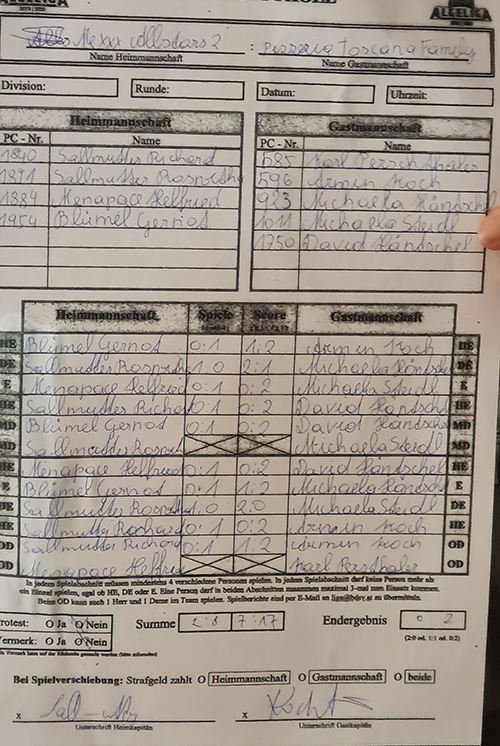 ALLELIGA
Mexx Allstars 2 : Pizzeria Toscana Family
Name Heimmannschaft Name Gastmannschaft
Division: Runde: Datum: Uhrzeit:
Heimmannschaft Gastmannschaft
PC - Nr. Name PC - Nr. Name
1890 Sallmutter Richard 585 Karl Persthaler
1891 Sallmutter 596 Armin Koch
1884 Menapace Hellfried 923 Michaela Händschel
1954 Blümel Gernot 1011 Michaela Steidl
1750 David Händschel
Heimmannschaft Spiele Score Gastmannschaft
HE Blümel Gernot 0:1 1:2 Armin Koch HE
DE Sallmutter 1:0 2:1 Michaela Händschel DE
E Menapace Hellfried 0:1 0:2 Michaela Steidl E
HE Sallmutter Richard 0:1 0:2 David Händschel HE
MD Blümel Gernot 0:1 0:2 David Händschel MD
MD Sallmutter Michaela Steidl MD
HE Menapace Hellfried 0:1 0:2 David Händschel HE
E Blümel Gernot 0:1 1:2 Michaela Händschel E
DE Sallmutter 1:0 2:0 Michaela Steidl DE
HE Sallmutter Richard 0:1 0:2 Armin Koch HE
OD Sallmutter Richard 0:1 1:2 Armin Koch OD
OD Menapace Hellfried Karl Persthaler OD
In jedem Spielabschnitt müssen mindestens 4 verschiedene Personen spielen. In jedem Spielabschnitt darf keine Person mehr als
ein Einzel spielen, egal ob HE, DE oder E. Eine Person darf in beiden Abschnitten zusammen maximal 3-mal zum Einsatz kommen.
Beim OD kann auch 1 Herr und 1 Dame im Team spielen. Spielberichte sind per E-Mail an liga@bdsv.st zu übermitteln.
Protest: O Ja O Nein Summe 2:8 7:17 Endergebnis 0 2
Vermerk: O Ja O Nein (2:0 od. 1:1 od. 0:2)
Bei Spielverschiebung: Strafgeld zahlt O Heimmannschaft O Gastmannschaft O beide
x x
Unterschrift Heimkapitän Unterschrift Gastkapitän